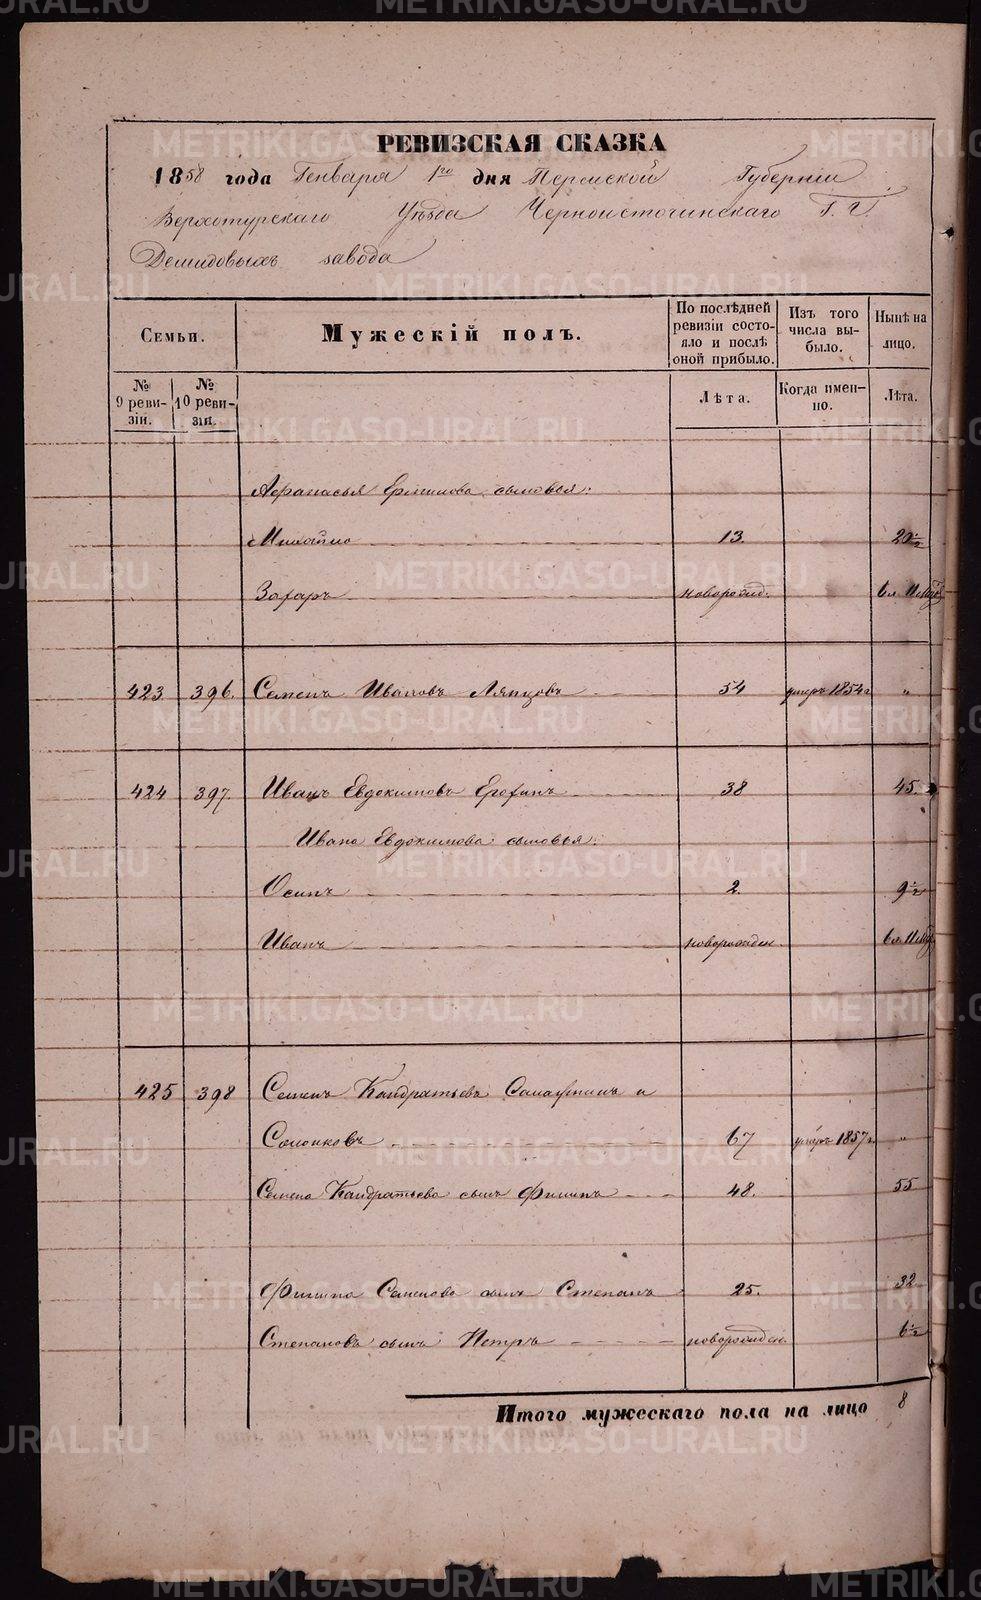 РЕВИЗСКАЯ СКАЗКА
1858 года Генваря 1го дня Пермской Губернiи
Верхотурскаго Уѣзда Черноисточинскаго Г.Г.
Демидовыхъ завода
Семьи.
Мужескій полъ.
По послѣдней ревизіи состояло и послѣ оной прибыло.
Изъ того числа выбыло.
Нынѣ на лицо.
№ 9 ревизіи.
№ 10 ревизіи.
Лѣта.
Когда именно.
Лѣта.
Афанасья Ермилова сыновья:
Михайло 13. 20 1/2
Захаръ новорожд:
423 396. Семенъ Ивановъ Ляпцовъ 54 умеръ 1854 г. "
424 397. Иванъ Евдокимовъ Ерохинъ 38 45
Ивана Евдокимова сыновья:
Осипъ 2. 9 1/2
Иванъ новорожден.
425 398 Семенъ Кандратьевъ и
Солонковъ 67 умеръ 1857 г. "
Семена Кандратьева сынъ Филипъ 48. 55
Филипа Семенова сынъ Степанъ 25. 32
Степановъ сынъ Петръ новорожден. 6 1/2
Итого мужескаго пола на лицо 8
METRIKI.GASO-URAL.RU